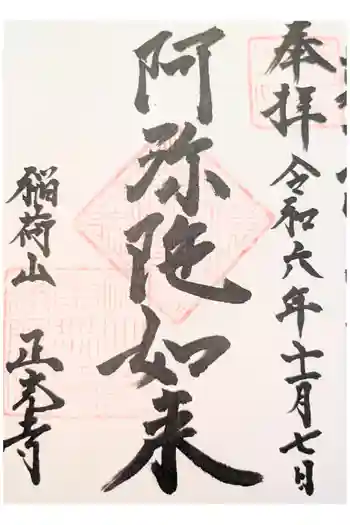 奉拝
令和六年十一月七日
阿弥陀如来
稲荷山
正光寺